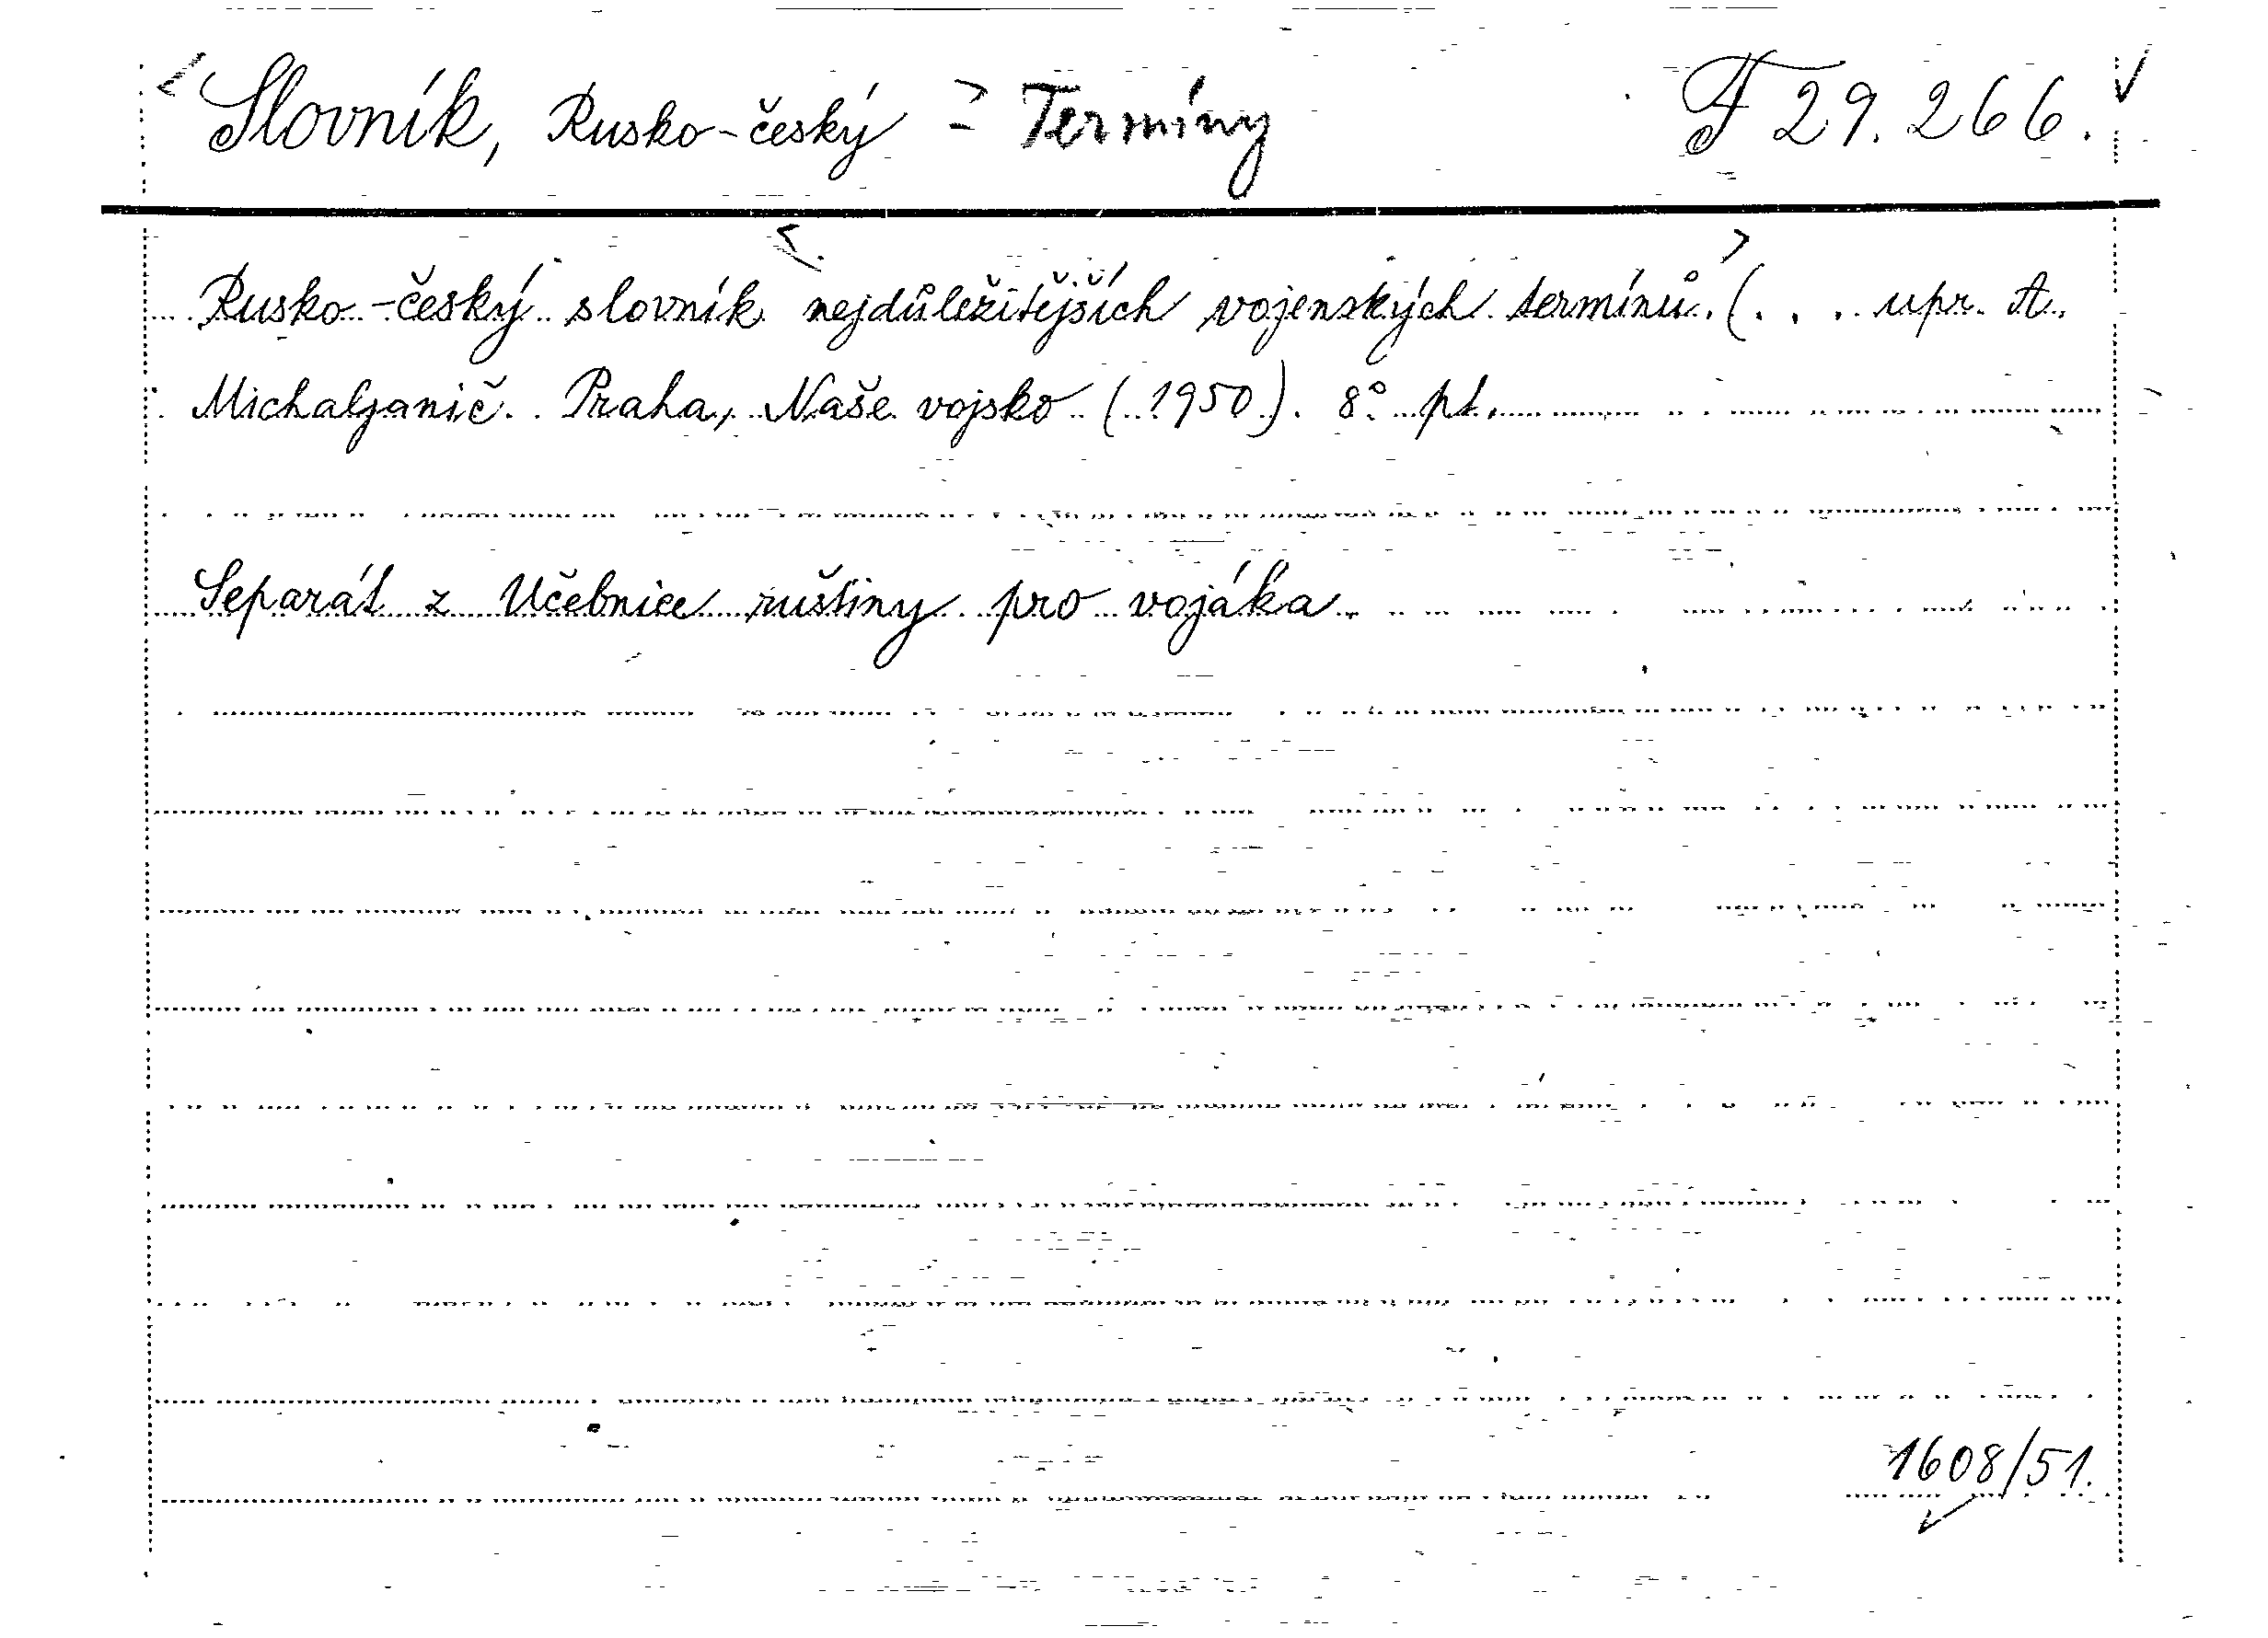 <Slovník, Rusko-český> = Termíny F 29.266.
Rusko-český slovník <nejdůležitějších vojenských termínů>. (... upr. A.
Michaljanič. Praha, Naše vojsko (1950). 8° pt.
Separát z Učebnice ruštiny pro vojáka.
1608/51.